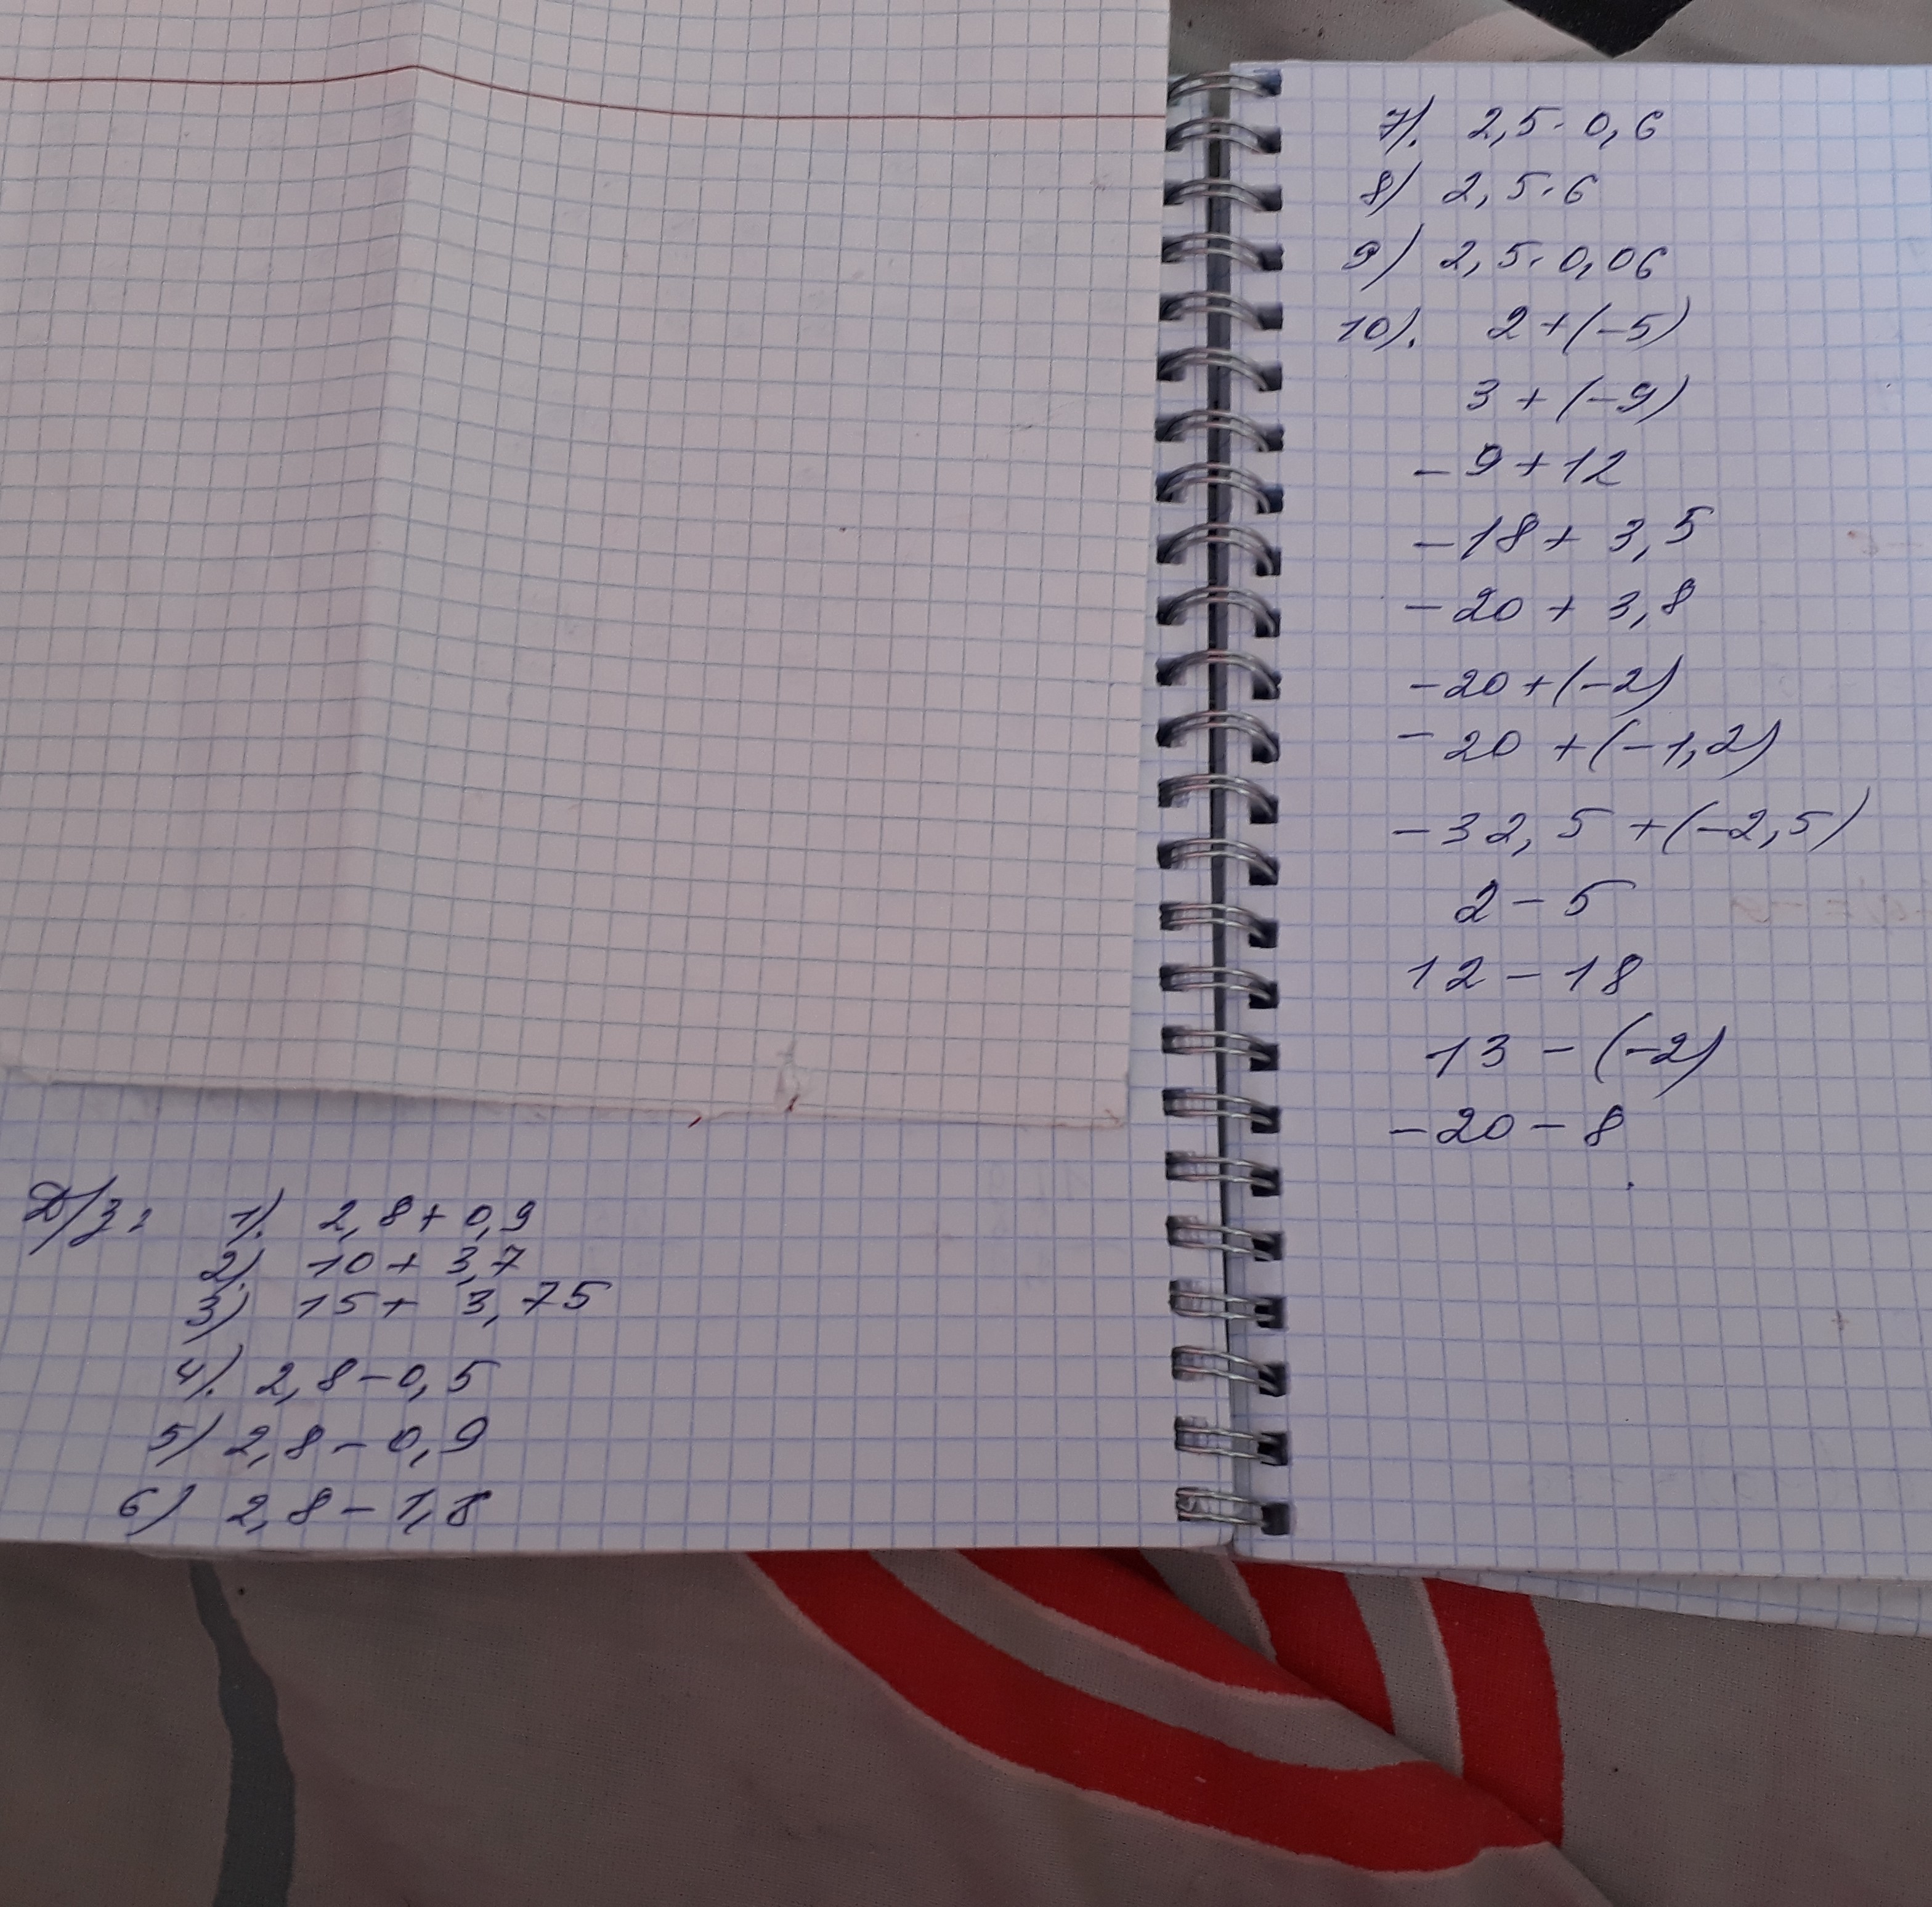 Д/з: 1). 2,8 + 0,9
2). 10 + 3,7
3) 15 + 3,75
4). 2,8 - 0,5
5) 2,8 - 0,9
6) 2,8 - 1,8
7). 2,5 · 0,6
8) 2,5 · 6
9) 2,5 · 0,06
10). 2 + (-5)
3 + (-9)
- 9 + 12
- 18 + 3,5
- 20 + 3,8
- 20 + (-2)
- 20 + (-1,2)
- 32,5 + (-2,5)
2 - 5
12 - 18
13 - (-2)
- 20 - 8